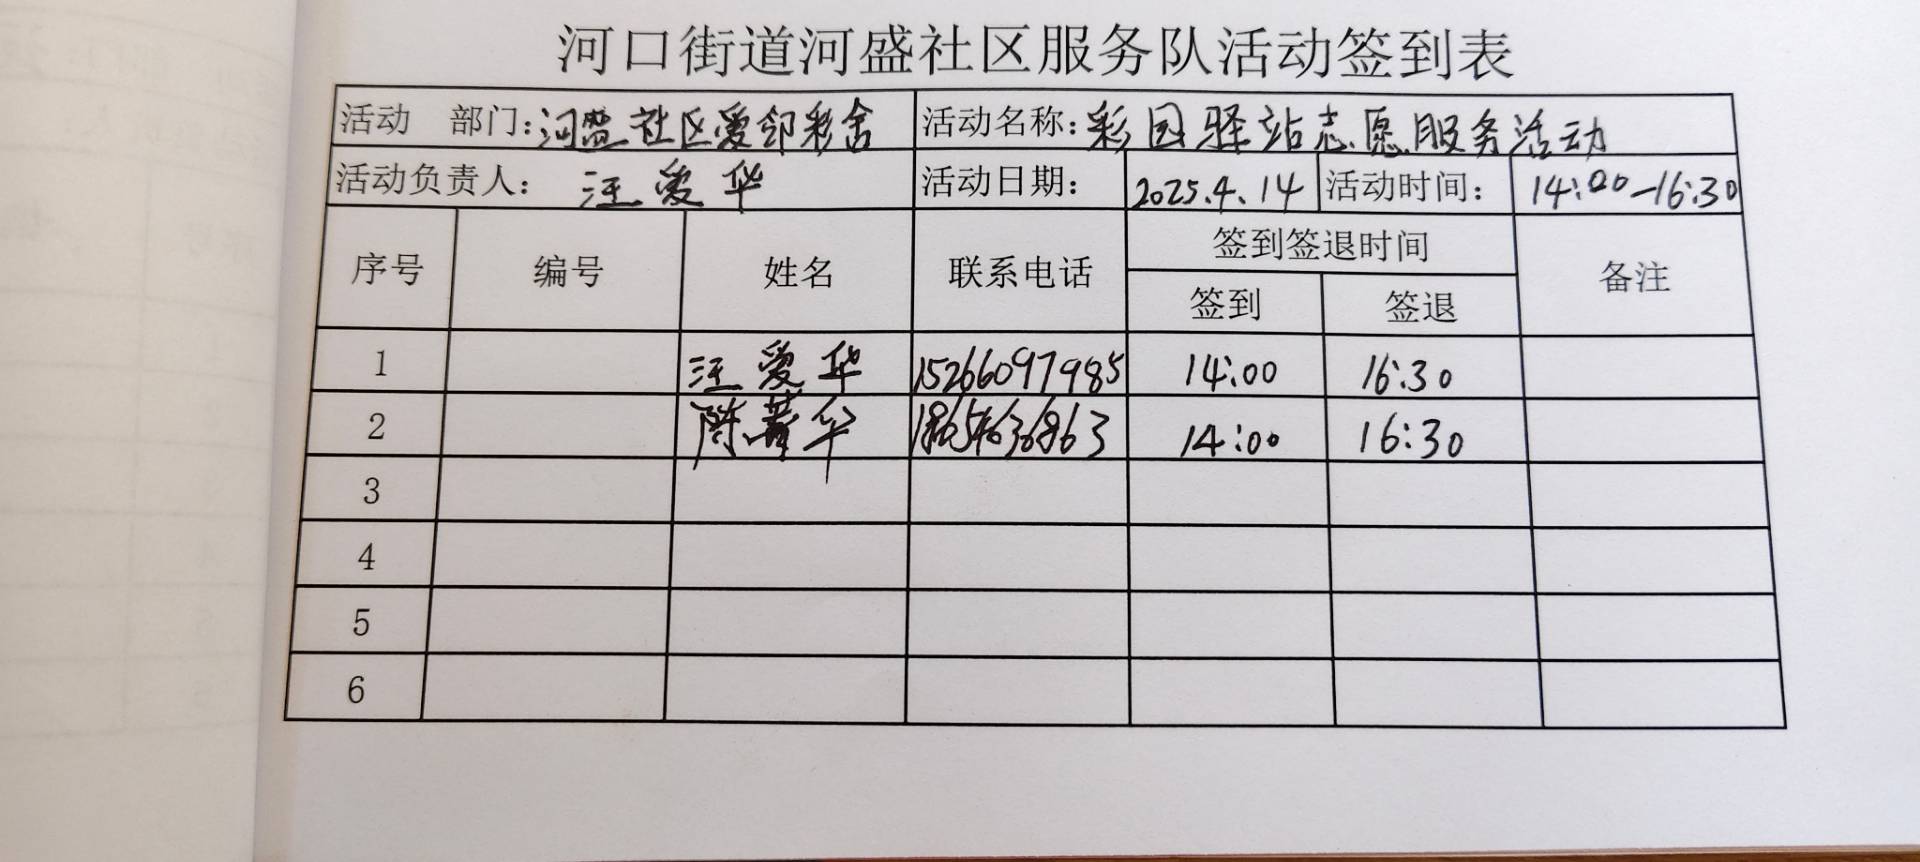 河口街道河盛社区服务队活动签到表
活动 部门:河盛社区爱邻彩舍 活动名称:彩园驿站志愿服务活动
活动负责人: 汪爱华 活动日期: 2025.4.14 活动时间: 14:00-16:30
序号 编号 姓名 联系电话 签到签退时间 备注
签到 签退
1 汪爱华 15266097985 14:00 16:30
2 陈菁华 14:00 16:30
3
4
5
6